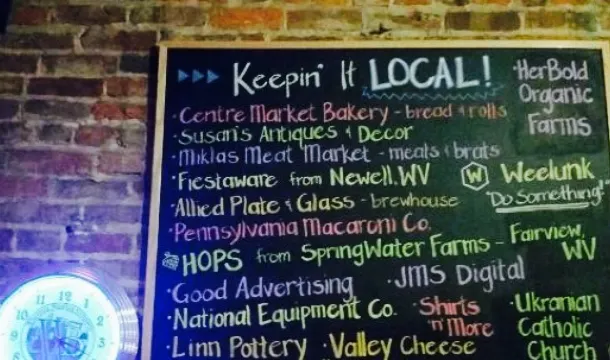 Keepin' It LOCAL!
·Centre Market Bakery - bread & rolls
·Susan's Antiques & Decor
·Miklas Meat Market - meats & brats
·Fiestaware from Newell, WV
·Allied Plate & Glass - brewhouse
·Pennsylvania Macaroni Co.
HOPS from SpringWater Farms - Fairview, WV
·Good Advertising
·JMS Digital
·National Equipment Co.
·Shirts 'n' More
·Linn Pottery
·Valley Cheese
·HerBold
Organic
Farms
W Weelunk
"Do Something!"
·Ukranian
Catholic
Church
12
1
2
3
4
8
9
10
11